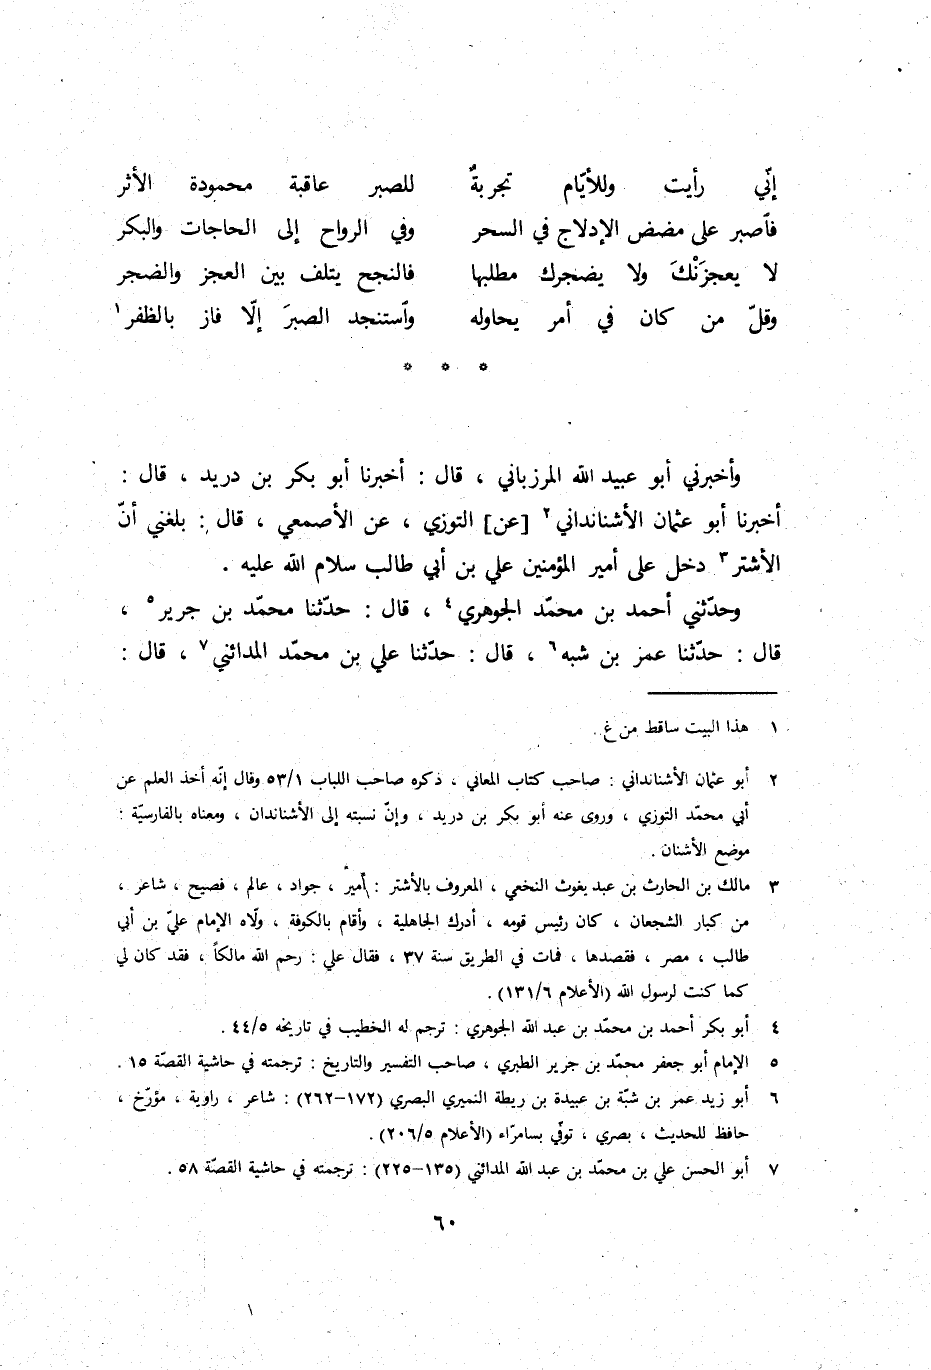 إنّي رأيت وللأيّام تجربةٌ للصبر عاقبة محمودة الأثر
فآصبر على مضض الإدلاج في السحر وفي الرواح إلى الحاجات والبكر
لا يعجزَنْكَ ولا يضجرك مطلبها فالنجح يتلف بين العجز والضجر
وقلّ من كان في أمر يحاوله وآستنجد الصبرَ إلّا فاز بالظفر١
* * *
وأخبرني أبو عبيد الله المرزباني ، قال : أخبرنا أبو بكر بن دريد ، قال :
أخبرنا أبو عثمان الأشنانداني٢ [عن] التوزي ، عن الأصمعي ، قال : بلغني أنّ
الأشتر٣ دخل على أمير المؤمنين علي بن أبي طالب سلام الله عليه .
وحدّثني أحمد بن محمّد الجوهري٤ ، قال : حدّثنا محمّد بن جرير٥ ،
قال : حدّثنا عمر بن شبه٦ ، قال : حدّثنا علي بن محمّد المدائني٧ ، قال :
١ هذا البيت ساقط من غ .
٢ أبو عثمان الأشنانداني : صاحب كتاب المعاني ، ذكره صاحب اللباب ٥٣/١ وقال إنّه أخذ العلم عن
أبي محمّد التوزي ، وروى عنه أبو بكر بن دريد ، وإنّ نسبته إلى الأشناندان ، ومعناه بالفارسيّة :
موضع الأشنان .
٣ مالك بن الحارث بن عبد يغوث النخعي ، المعروف بالأشتر : أمير ، جواد ، عالم ، فصيح ، شاعر ،
من كبار الشجعان ، كان رئيس قومه ، أدرك الجاهلية ، وأقام بالكوفة ، ولّاه الإمام عليّ بن أبي
طالب ، مصر ، فقصدها ، فمات في الطريق سنة ٣٧ ، فقال علي : رحم الله مالكاً ، فقد كان لي
كما كنت لرسول الله (الأعلام ١٣١/٦) .
٤ أبو بكر أحمد بن محمّد بن عبد الله الجوهري : ترجم له الخطيب في تاريخه ٤٤/٥ .
٥ الإمام أبو جعفر محمّد بن جرير الطبري ، صاحب التفسير والتاريخ : ترجمته في حاشية القصّة ١٥ .
٦ أبو زيد عمر بن شبّة بن عبيدة بن ريطة النميري البصري (١٧٢-٢٦٢) : شاعر ، راوية ، مؤرّخ ،
حافظ للحديث ، بصري ، توفّي بسامرّاء (الأعلام ٢٠٦/٥) .
٧ أبو الحسن علي بن محمّد بن عبد الله المدائني (١٣٥-٢٢٥) : ترجمته في حاشية القصّة ٥٨ .
٦٠